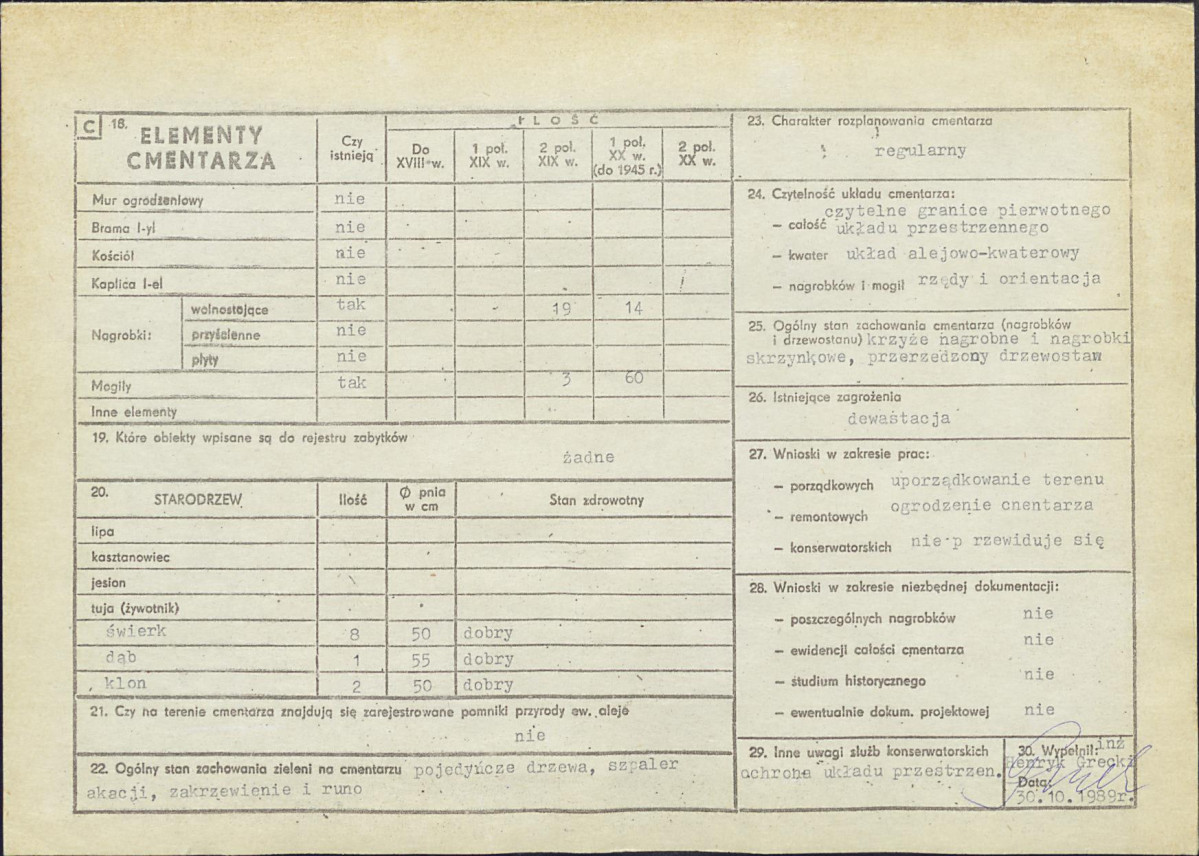 C 18. ELEMENTY
CMENTARZA
Czy
istnieją
I L O Ś Ć
Do
XVIII w.
1 poł.
XIX w.
2 poł.
XIX w.
1 poł.
XX w.
(do 1945 r.)
2 poł.
XX w.
Mur ogrodzeniowy nie
Brama I-yl nie
Kościół nie
Kaplica I-el nie
Nagrobki:
wolnostojące tak 19 14
przyścienne nie
płyty nie
Mogiły tak 3 60
Inne elementy
19. Które obiekty wpisane są do rejestru zabytków
żadne
20. STARODRZEW Ilość Ø pnia
w cm
Stan zdrowotny
lipa
kasztanowiec
jesion
tuja (żywotnik)
świerk 8 50 dobry
dąb 1 55 dobry
klon 2 50 dobry
21. Czy na terenie cmentarza znajdują się zarejestrowane pomniki przyrody ew. aleje
nie
22. Ogólny stan zachowania zieleni na cmentarzu pojedyńcze drzewa, szpaler
akacji, zakrzewienie i runo
23. Charakter rozplanowania cmentarza
regularny
24. Czytelność układu cmentarza:
czytelne granice pierwotnego
– całość układu przestrzennego
– kwater układ alejowo-kwaterowy
– nagrobków i mogił rzędy i orientacja
25. Ogólny stan zachowania cmentarza (nagrobków
i drzewostanu) krzyże nagrobne i nagrobki
skrzynkowe, przerzedzony drzewostaw
26. Istniejące zagrożenia
dewastacja
27. Wnioski w zakresie prac:
– porządkowych uporządkowanie terenu
– remontowych ogrodzenie cnentarza
– konserwatorskich nie p rzewiduje się
28. Wnioski w zakresie niezbędnej dokumentacji:
– poszczególnych nagrobków nie
– ewidencji całości cmentarza nie
– studium historycznego nie
– ewentualnie dokum. projektowej nie
29. Inne uwagi służb konserwatorskich
ochrona układu przestrzen.
30. Wypełnił: inż
Henryk Grecki
Data:
30.10.1989r.